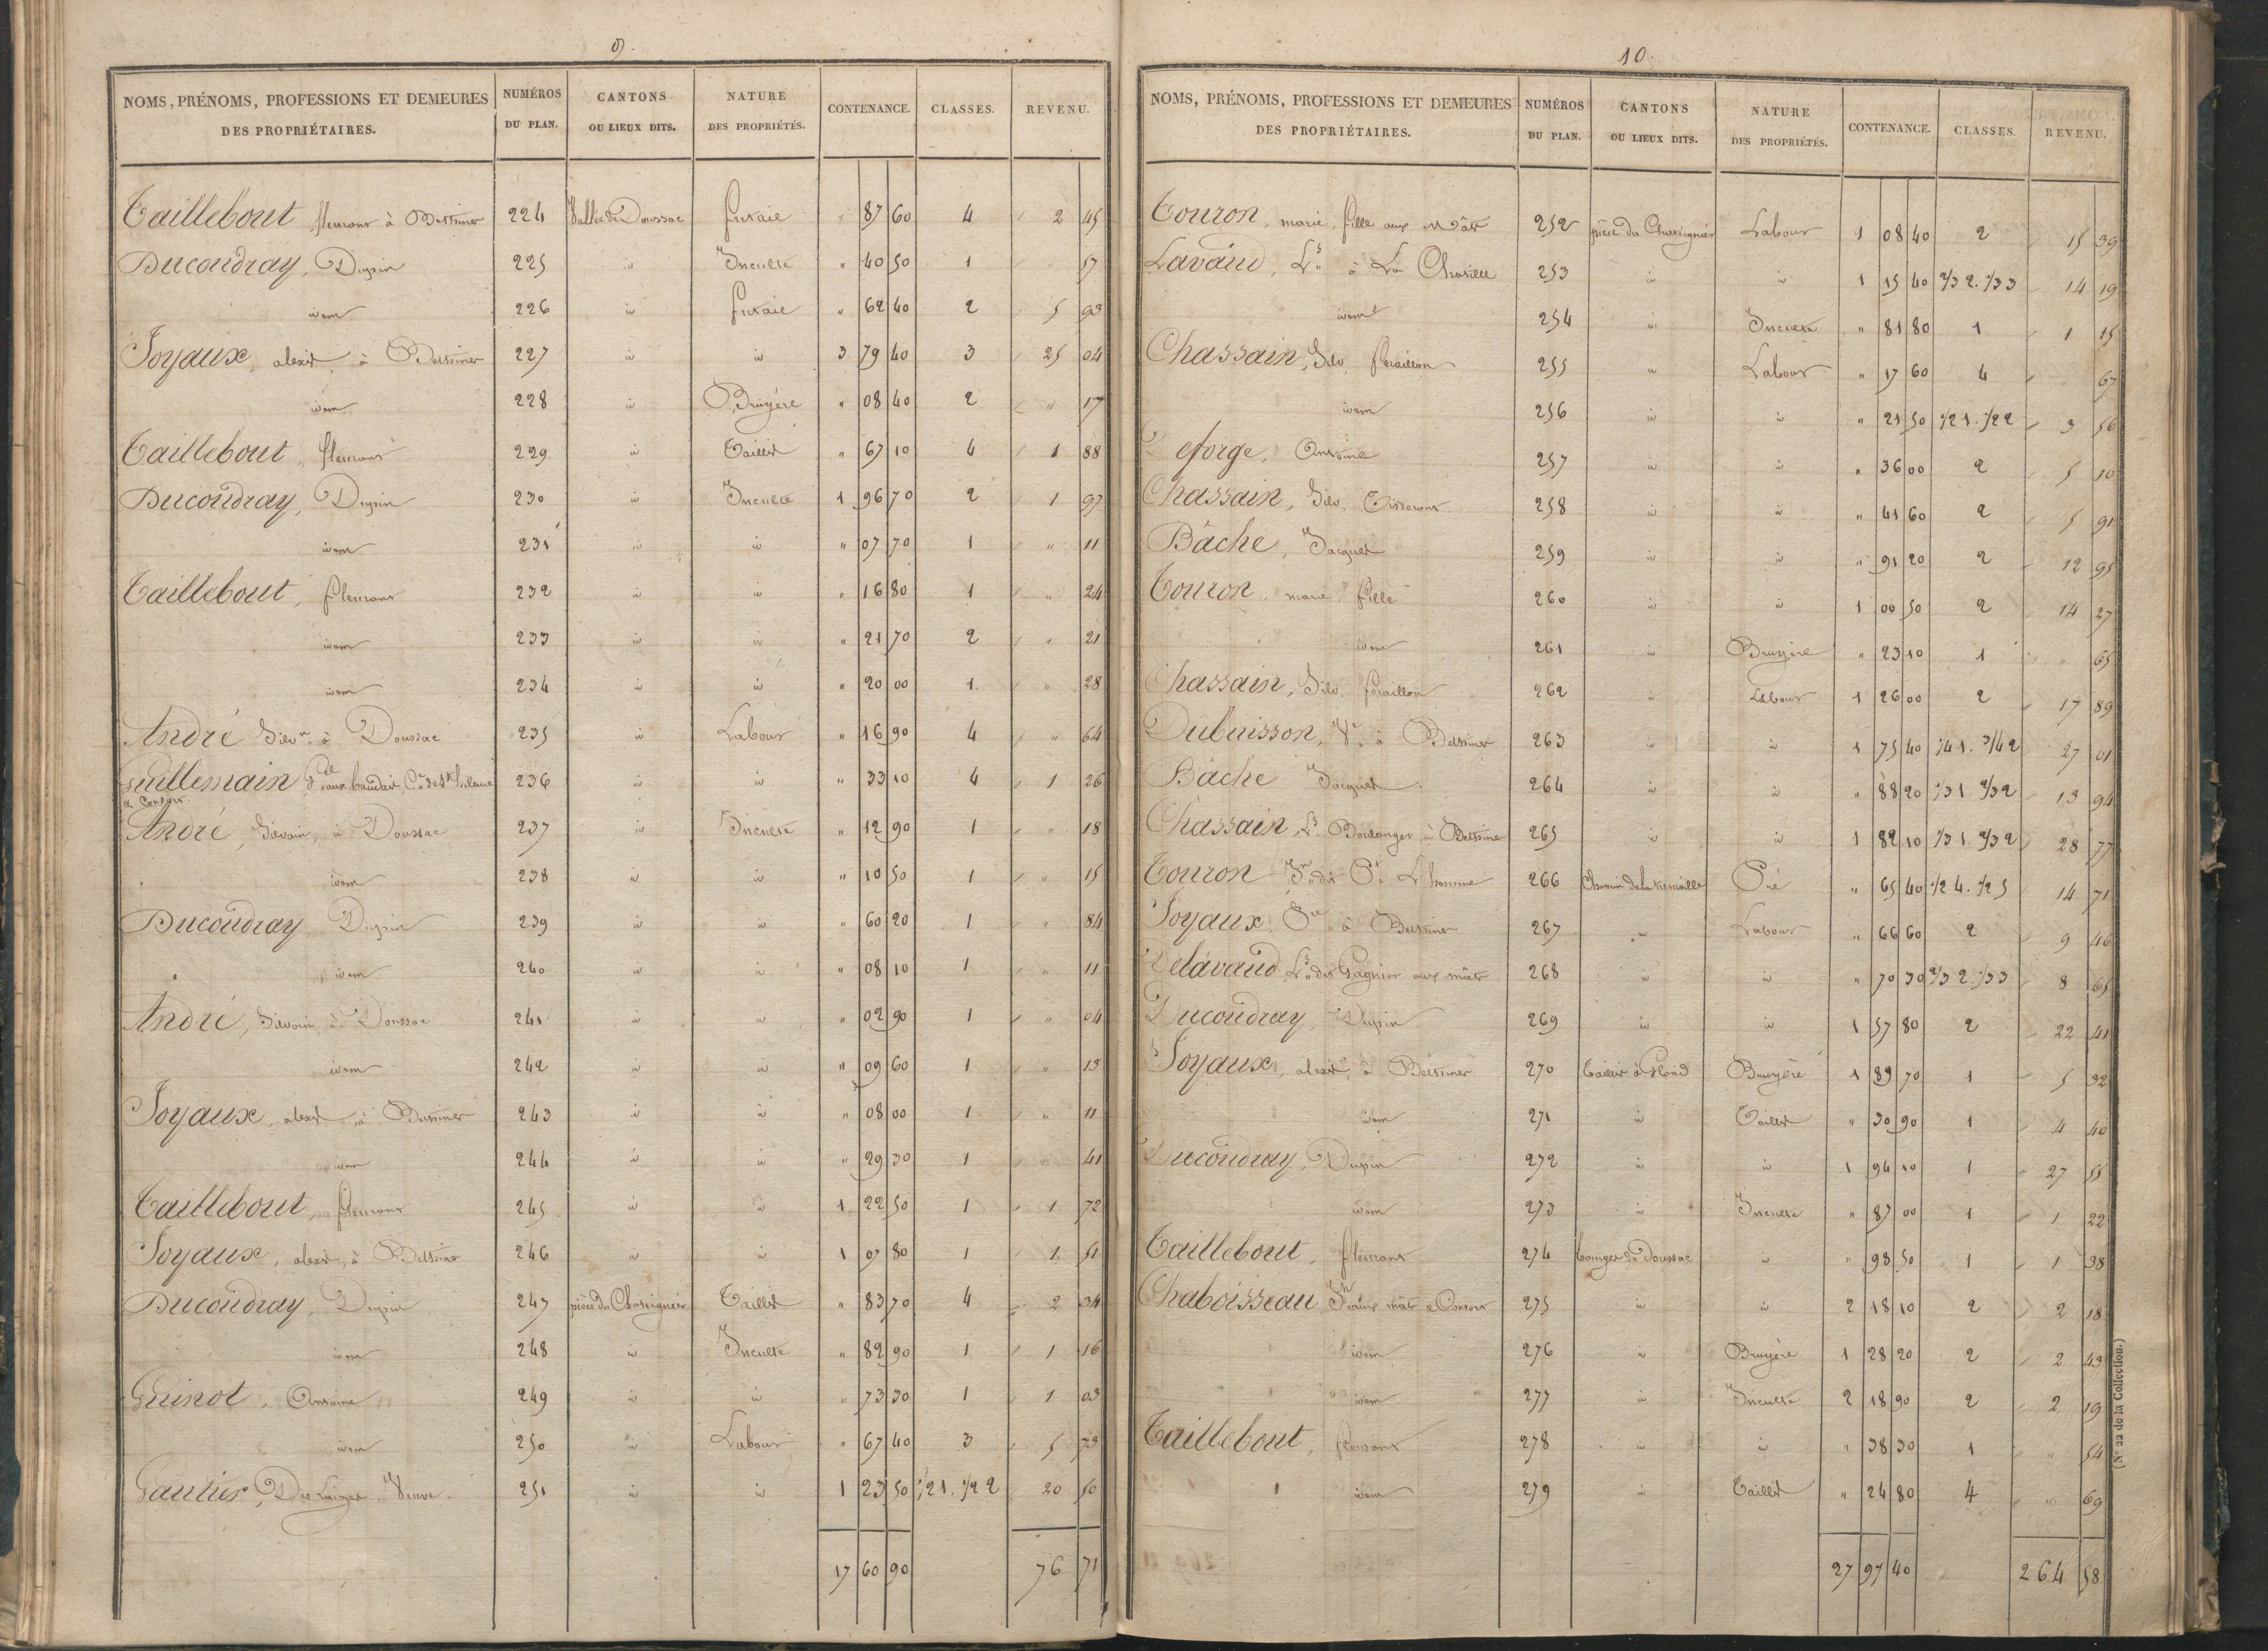 9.
NOMS, PRÉNOMS, PROFESSIONS ET DEMEURES DES PROPRIÉTAIRES. NUMÉROS DU PLAN. CANTONS OU LIEUX DITS. NATURE DES PROPRIÉTÉS. CONTENANCE. CLASSES. REVENU.
Taillebout, fleurant à 224 Vallée de Doussac futaie " 87 60 4 2 45
Ducoudray, Dupin 225 id Inculte " 40 50 1 57
idem 226 id futaie " 62 40 2 5 93
Joyaux, alexis, à 227 id id 3 79 40 3 25 04
idem 228 id Bruyère " 08 40 2 " 17
Taillebout, fleurant 229 id Taillis " 67 10 4 1 88
Ducoudray, Dupin 230 id Inculte 1 96 70 2 1 97
idem 231 id id " 07 70 1 " 11
Taillebout, fleurant 232 id id " 16 80 1 " 24
idem 233 id id " 21 70 2 " 21
idem 234 id id " 20 00 1 " 28
André Silvn à Doussac 235 id Labour " 16 90 4 " 64
Guillemain aux baudais, Cne de St hilaire & Consors 236 id id " 33 10 4 1 26
André, Silvain, à Doussac 237 id Inculte " 12 90 1 " 18
idem 238 id id " 10 50 1 " 15
Ducoudray, Dupin 239 id id " 60 20 1 " 84
idem 240 id id " 08 10 1 " 11
André, Silvain, à Doussac 241 id id " 02 90 1 " 04
idem 242 id id " 09 60 1 " 13
Joyaux, alexis, à 243 id id " 08 00 1 " 11
idem 244 id id " 29 30 1 " 41
Taillebout, fleurant 245 id id 1 22 50 1 1 72
Joyaux, alexis, à 246 id id 1 07 80 1 1 51
Ducoudray, Dupin 247 pièce du Chassignier Taillis " 83 70 4 2 34
idem 248 id Inculte " 82 90 1 1 16
Guinot, Antoine 249 id id " 73 30 1 1 03
idem 250 id Labour " 67 40 3 5 73
Gautier, Veuve 251 id id 1 23 50 1/2 1. 1/2 2 20 50
17 60 90 76 71
10.
NOMS, PRÉNOMS, PROFESSIONS ET DEMEURES DES PROPRIÉTAIRES. NUMÉROS DU PLAN. CANTONS OU LIEUX DITS. NATURE DES PROPRIÉTÉS. CONTENANCE. CLASSES. REVENU.
Touron, marie, fille aux Mâts 252 pièce du Chassignier Labour 1 08 40 2 15 39
Lavaud, Ls à La 253 id id 1 15 40 2/3 2. 1/3 3 14 19
idem 254 id Inculte " 81 80 1 1 15
Chassain, Silv. 255 id Labour " 17 60 4 67
idem 256 id id " 21 50 1/2 1. 1/2 2 3 56
Deforge, Antoine 257 id id " 36 00 2 5 10
Chassain, Silv. Tisserant 258 id id " 41 60 2 5 91
Bâche, Jacques 259 id id " 91 20 2 12 95
Touron, marie, fille 260 id id 1 00 50 2 14 27
idem 261 id Bruyère " 23 10 1 " 65
Chassain, Silv. 262 id Labour 1 26 00 2 17 89
Dubuisson, Ve à 263 id id 1 75 40 1/4 1. 3/4 2 27 01
Bâche Jacques 264 id id " 88 20 1/3 1. 2/3 2 13 94
Chassain, Ls Boulanger à 265 id id 1 82 10 1/3 1. 2/3 2 28 77
Touron Jn dit Lhomme 266 Chemin de la tremaille Pré " 65 40 1/2 4. 1/2 5 14 71
Joyaux, à 267 id Labour " 66 60 2 9 46
Delavaud, Ls dit Gagnier aux mâts 268 id id " 70 30 2/3 2. 1/3 3 8 65
Ducoudray, Dupin 269 id id 1 57 80 2 22 41
Joyaux, alexis, à 270 Taillis à Bruyère 1 89 70 1 5 32
idem 271 id Taillis " 30 90 1 4 40
Ducoudray, Dupin 272 id id 1 94 10 1 27 55
idem 273 id Inculte " 87 00 1 1 22
Taillebout, fleurant 274 de Doussac id " 98 50 1 1 38
Chaboisseau, Jn aux mâts & Consors 275 id id 2 18 10 2 2 18
idem 276 id Bruyère 1 28 20 2 2 43
idem 277 id Inculte 2 18 90 2 2 19
Taillebout, fleurant 278 id id " 38 30 1 " 54
idem 279 id Taillis " 24 80 4 " 69
27 97 40 264 58
(N° 22 de la Collection.)